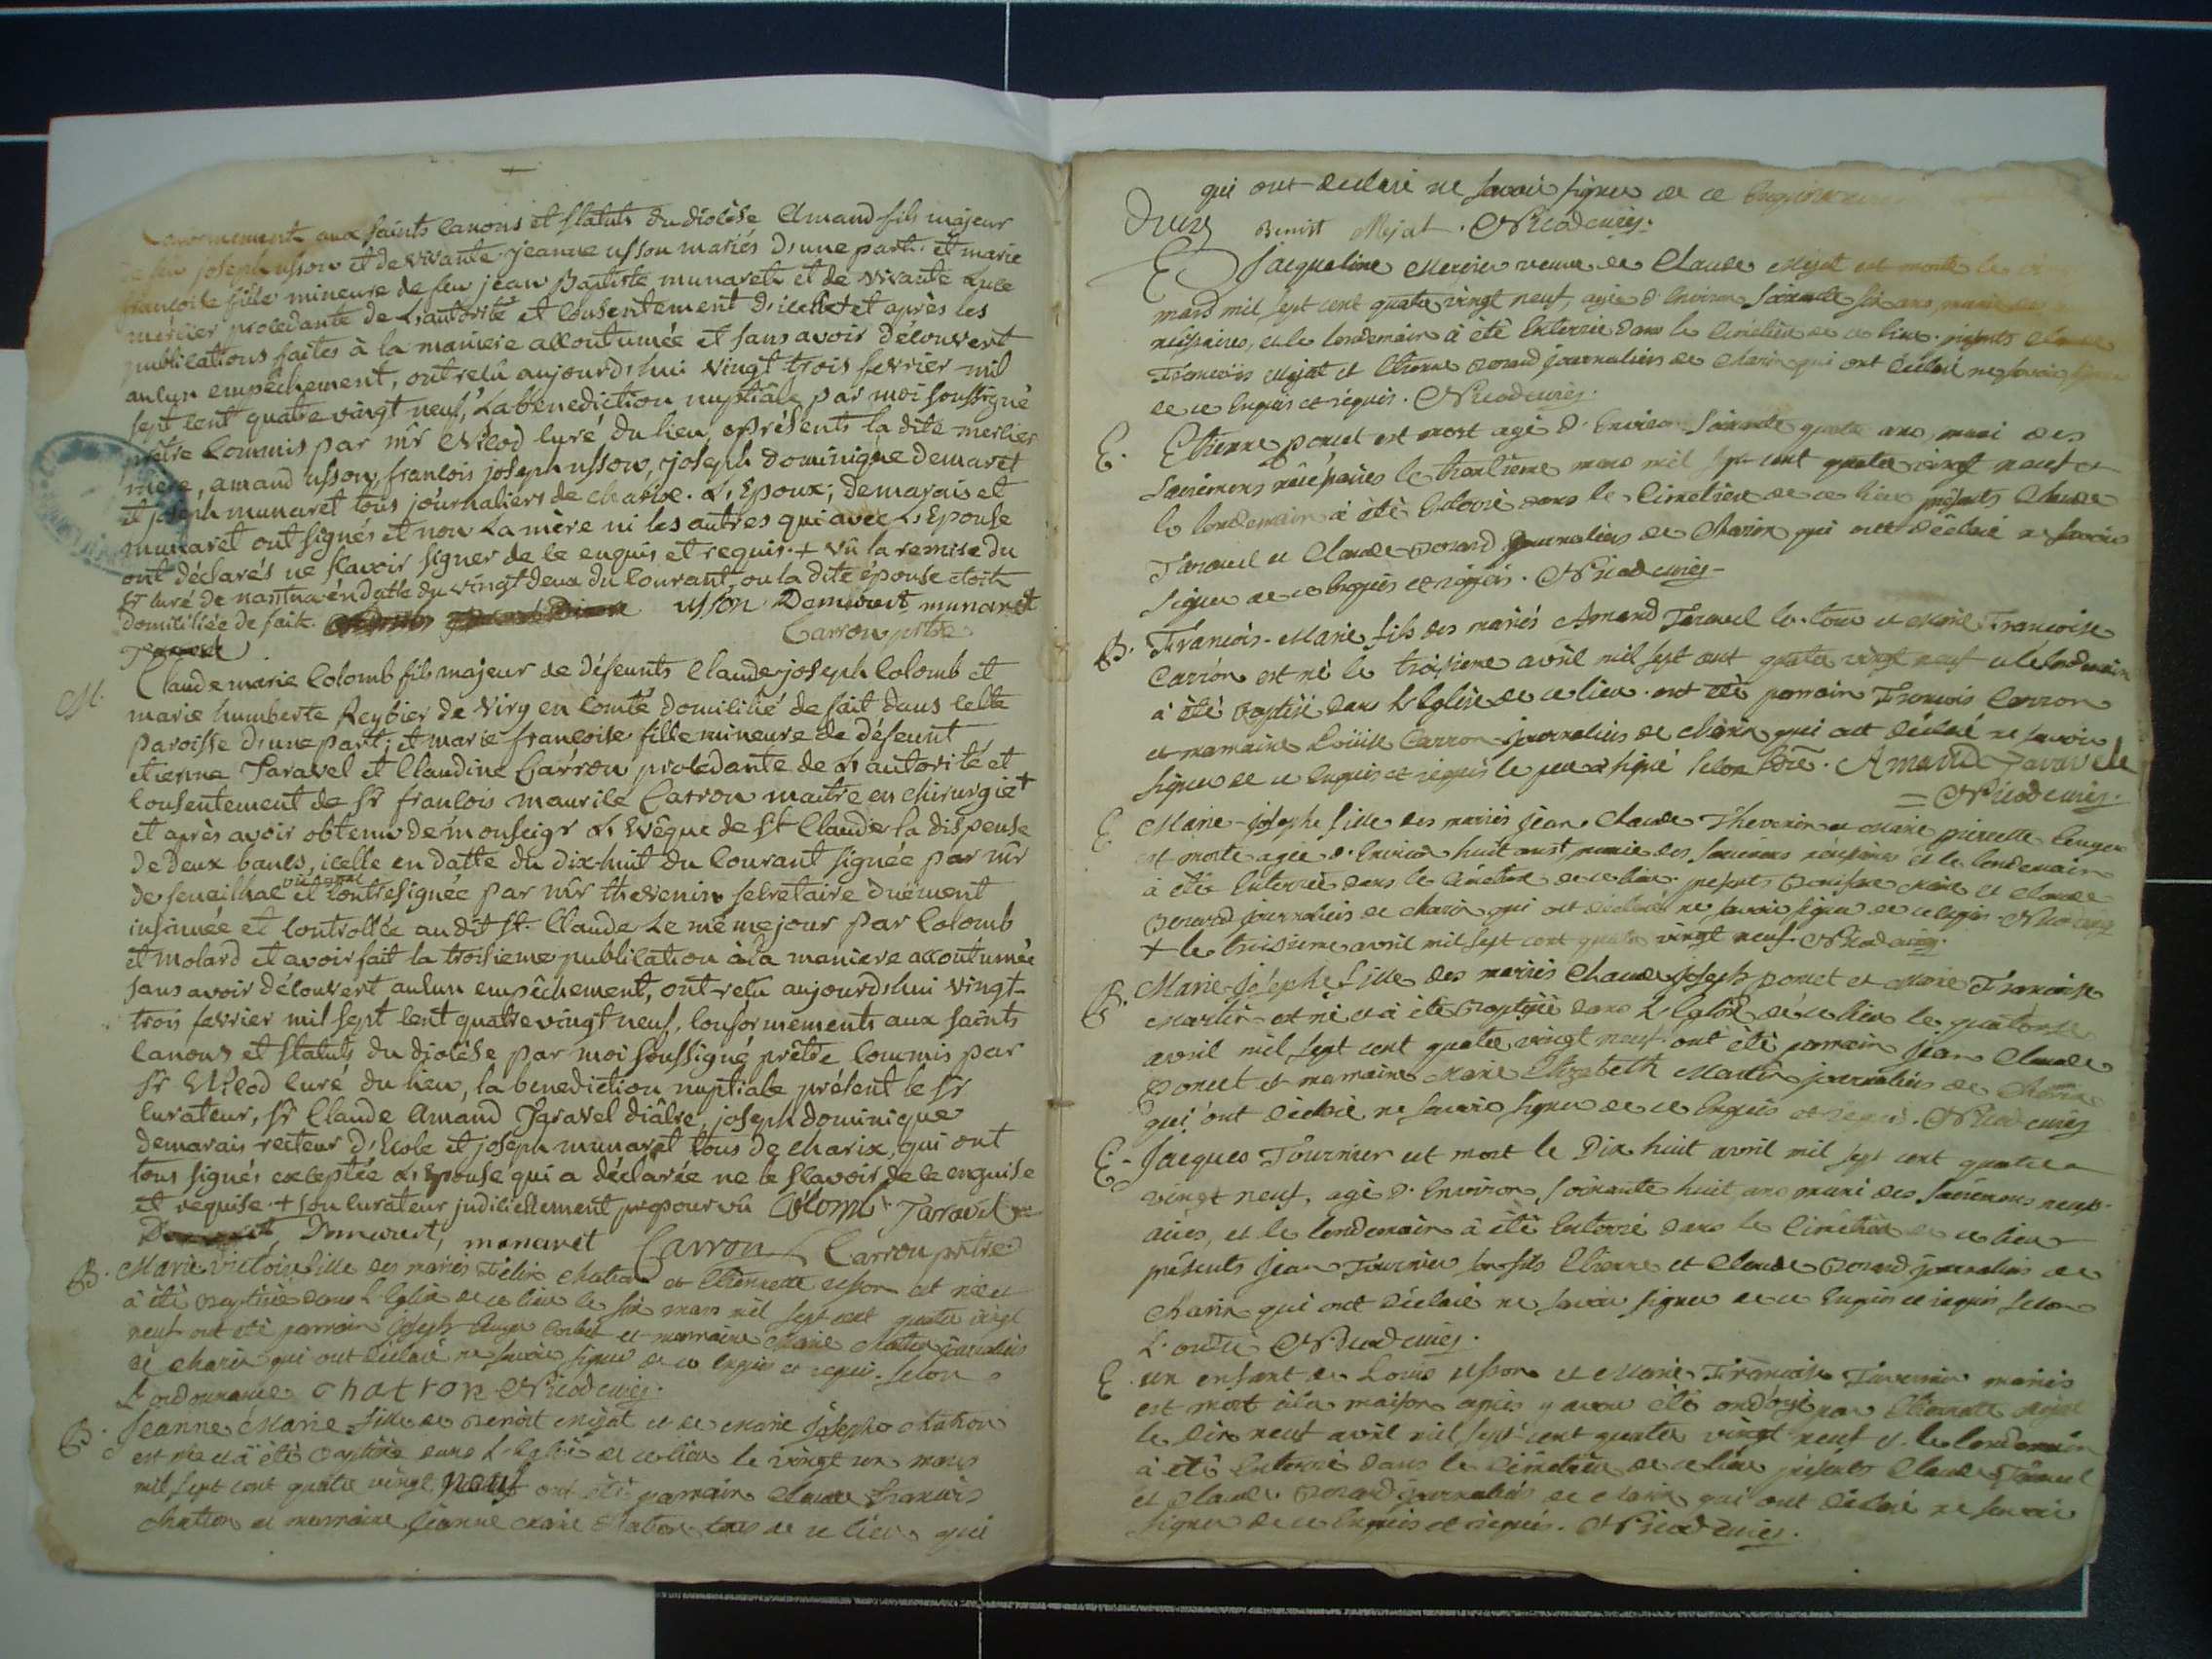 aux saints canons et statuts du diocèse Amand fils majeur
joseph usson et de vivante jeanne usson mariés d'une part et marie
françoise fille mineure de feu jean Baptiste munaret et de vivante
mercier procédante de L'autorité et consentement d'icelle et après les
publications faites à la maniere accoutumée et sans avoir découvert
aucun empêchement, ont reçû aujourd'hui vingt trois fevrier mil
sept cent quatre vingt neuf, La bénediction nuptiale par moi soussigné
prêtre commis par mr Nicod curé du lieu, présents la dite mercier
mere, amand usson, françois joseph usson, joseph dominique demaret
et joseph munaret tous journaliers de charix. L'Epoux, demarais et
munaret ont signés et non La mère ni les autres qui avec L'Epouse
ont déclarés ne sçavoir signer de ce enquis et requis. + vû la remise du
sr curé de nantua en datte du vingt deux du courant, ou la dite épouse etoit
domiciliée de fait. usson Demarest munaret
Carron ptre
M. Claude marie Colomb fils majeur de défeunts Claude joseph Colomb et
marie humberte Reybier de Viry en Comté domicilié de fait dans cette
paroisse d'une part; et marie françoise fille mineure de défeunt
etienne Taravel et Claudine Carron procédante de L'autorité et
consentement de sr françois maurile Carron maitre en chirurgie +
et après avoir obtenu de monseigr L'Evêque de St Claude la dispense
de deux bancs, icelle en datte du dix-huit du courant signée par mr
de senailhac et contresignée par mr thevenin secretaire duëment
insinuée et controllée au dit St. Claude Le même jour par Colomb
et molard et avoir fait la troisieme publication à la maniere accoutumée
sans avoir découvert aucun empêchement, ont reçû aujourd'hui vingt-
trois fevrier mil sept cent quatre vingt neuf, conformements aux saints
canons et statuts du diocèse par moi soussigné prêtre commis par
sr Nicod curé du lieu, la benediction nuptiale, présent le sr
curateur, sr Claude Amand Taravel diâcre, joseph dominique
demarais recteur d'Ecole et joseph munaret tous de charix, qui ont
tous signés exceptée L'Epouse qui a déclarée ne le sçavoir de ce enquise
et requise. + son curateur judiciellement pourvû Colomb Taravel
Demarest, munaret Carron Carron prtre
B. Marie victoire fille des mariés Felix Chatron et Etiennette usson est née et
à été baptisée dans L'Eglise de ce lieu le six mars mil sept cent quatre vingt
neuf ont été parrain joseph et marraine Marie Chatron journaliers
de charix qui ont déclaré ne savoir signer de ce enquis et requis. selon
L'ordonnance. Chatron Nicod curé.
B. Jeanne Marie fille de Benoit Mejat et de Marie Josephe Chatron
est née et à été baptisée dans L'Eglise de ce lieu le vingt un mars
mil sept cent quatre vingt neuf ont été parrain Claude François
Chatron et marraine jeanne Marie Chatron tous de ce lieu qui
qui ont déclaré ne savoir signer de ce
Benoist Mejat. Nicod curé.
E Jacqueline Mercier veuve de Claude Mejat est morte le
mars mil sept cent quatre vingt neuf, agée d'environ soixante six ans, munie
et le lendemain à été Enterrée dans le Cimetière de ce lieu. présents
François Mejat et Etienne journaliers de charix qui ont déclaré ne savoir
de ce enquis et requis. Nicod curé.
E. Etienne poncet est mort agé d'environ soixante quatre ans, muni des
sacremens le trentieme mars mil sept cent quatre vingt neuf et
le lendemain à été Enterré dans le Cimetière de ce lieu présents Claude
Taravel et Claude journaliers de charix qui ont déclaré ne savoir
signer de ce enquis et requis. Nicod curé.
B. François-Marie fils des mariés Amand Taravel et Marie Françoise
Carron est né le troisieme avril mil sept cent quatre vingt neuf et le lendemain
à été baptisé dans L'Eglise de ce lieu. ont été parrain François Carron
et marraine Loüise Carron journaliers de charix qui ont déclaré ne savoir
signer de ce enquis et requis le pere à signé. Amand Taravel
= Nicod curé.
E Marie-Josephe fille des mariés Jean Claude Thevenin et Marie
est morte agée d'environ huit ans +, munie des sacremens et le lendemain
à été Enterrée dans le Cimetière de ce lieu. présents et Claude
journaliers de charix qui ont déclaré ne savoir signer de ce enquis. Nicod curé
+ le troisieme avril mil sept cent quatre vingt neuf. Nicod curé.
B. Marie-Josephe fille des mariés Claude Joseph poncet et Marie Françoise
Martin est né et à été baptisée dans L'Eglise de ce lieu le quatorze
avril mil sept cent quatre vingt neuf. ont été parrain Jean Claude
poncet et marraine Marie Elizabeth Martin journaliers de Charix
qui ont déclaré ne savoir signer de ce enquis et requis. Nicod curé
E. Jacques Tournier est mort le Dix huit avril mil sept cent quatre
vingt neuf, agé d'environ soixante huit ans muni des sacremens
et le lendemain à été Enterré dans le Cimetière de ce lieu
présents Jean Tournier son fils Etienne et Claude journaliers de
charix qui ont déclaré ne savoir signer de ce enquis et requis selon
L'ordce Nicod curé.
E. un enfant de Louis usson et Marie Françoise mariés
est mort à la maison après y avoir été ondoyé par Etiennette
le dix neuf avril mil sept cent quatre vingt neuf et le lendemain
à été Enterré dans le Cimetière de ce lieu présents Claude Taravel
et Claude journaliers de charix qui ont déclaré ne savoir
signer de ce enquis et requis. Nicod curé.